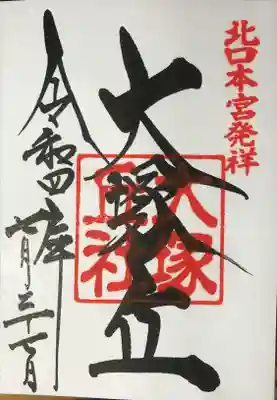 北口本宮発祥
大塚丘
大塚
丘社
令和四年
七月三十一日